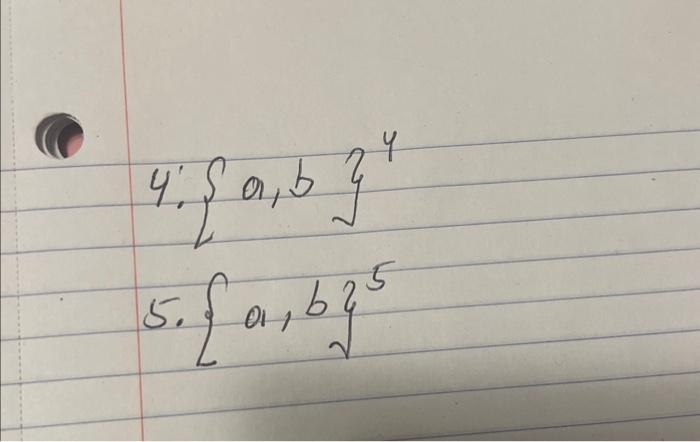 4. { a, b }⁴
5. { a, b }⁵